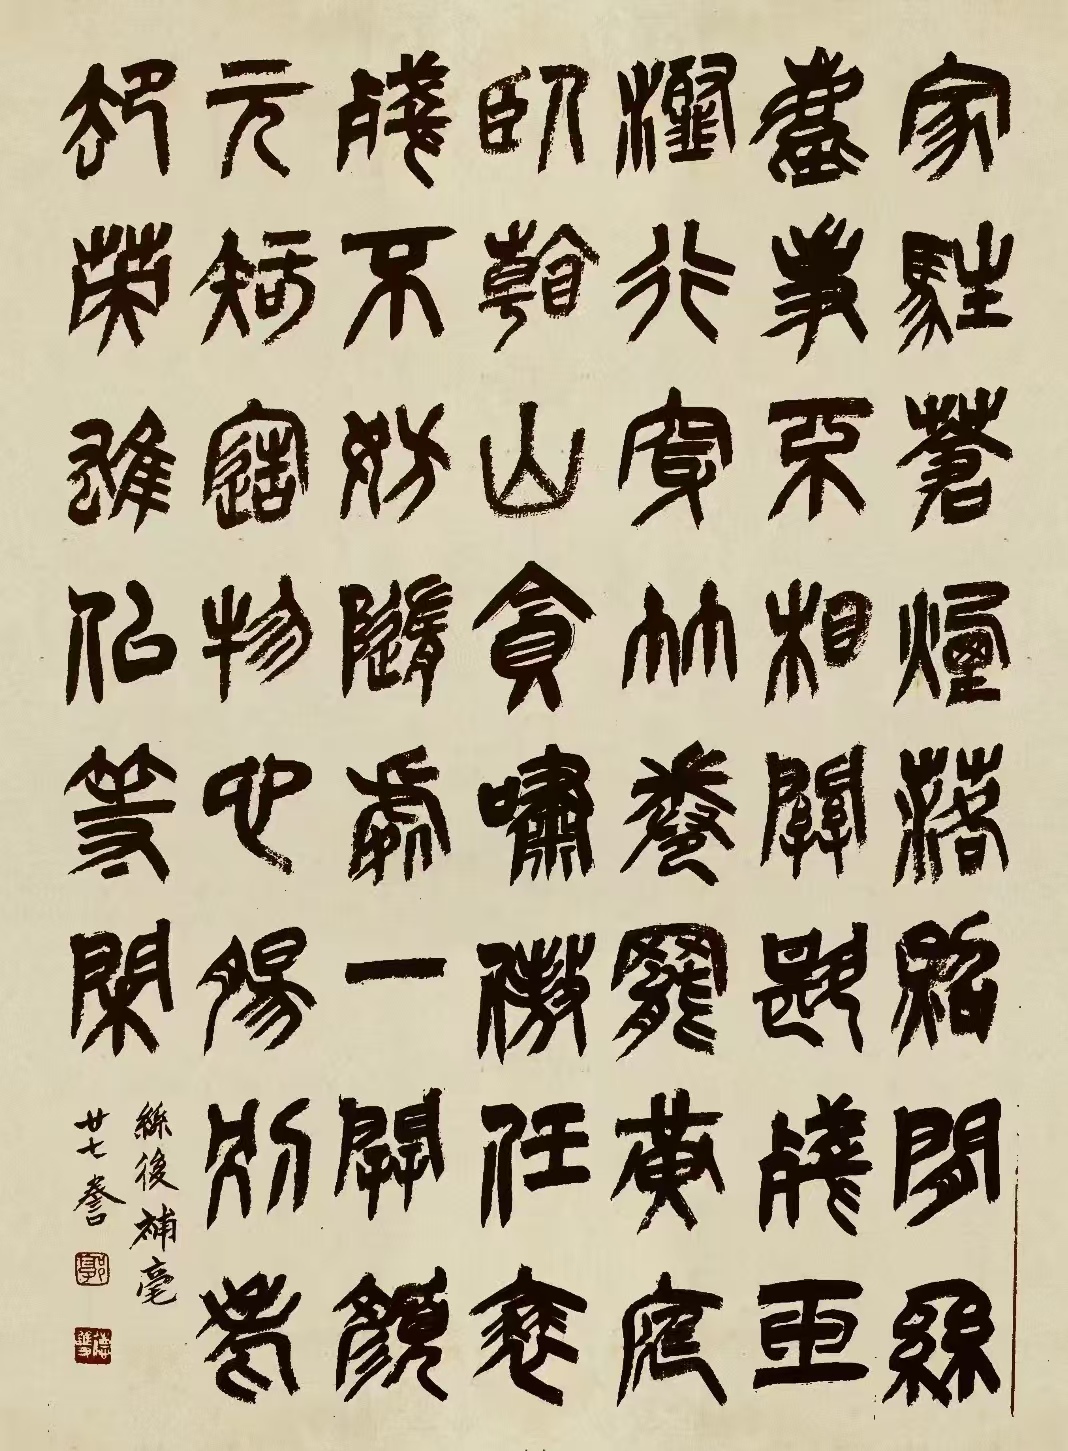 家駐蒼煙落照間絲
塵事不相關斟殘玉
瀣行穿竹卷罷黃庭
臥看山貪嘯傲任衰
殘不妨隨處一開顏
元知造物心腸別老
却英雄似等閑
絲後補毫
廿七